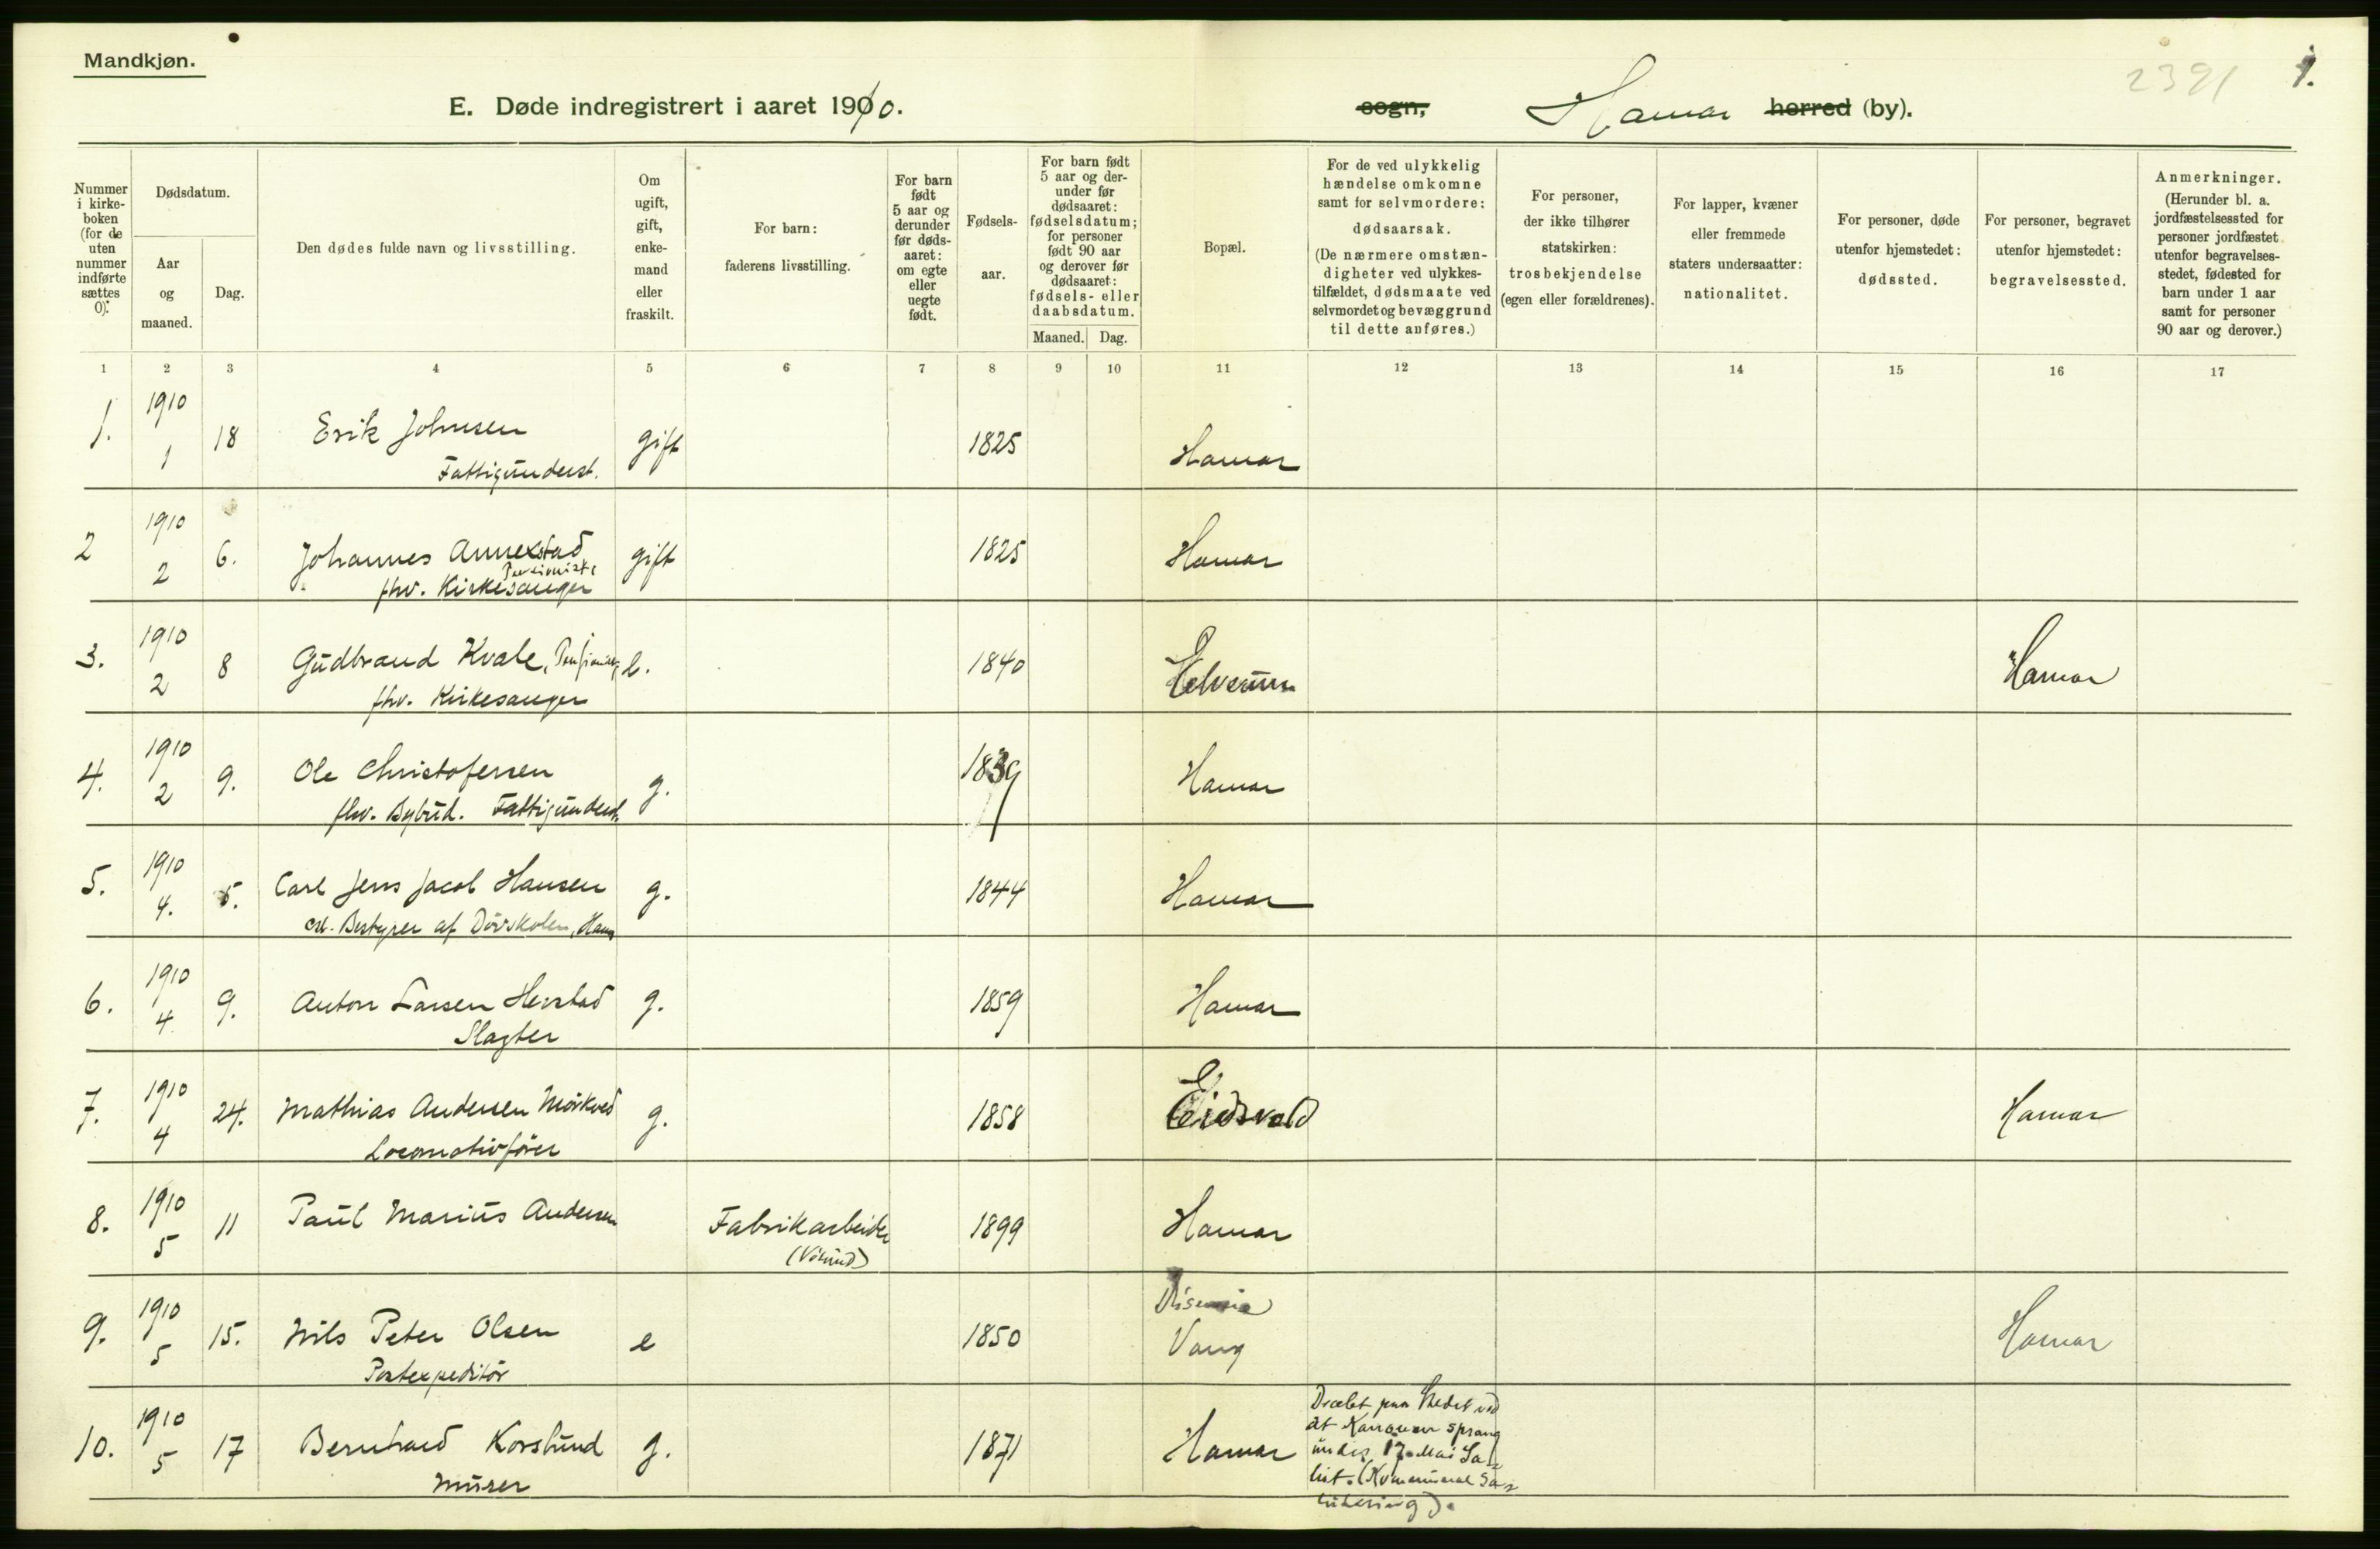 Mandkjøn.
2391 1.
E. Døde indregistrert i aaret 1910. sogn, Hamar herred (by).
Nummer i kirke-boken (for de uten nummer indførte sættes 0).
Dødsdatum.
Aar og maaned.
Dag.
Den dødes fulde navn og livsstilling.
Om ugift, gift, enke-mand eller fraskilt.
For barn: faderens livsstilling.
For barn født 5 aar og derunder før døds-aaret: om egte eller uegte født.
Fødsels-aar.
For barn født 5 aar og der-under før dødsaaret: fødselsdatum; for personer født 90 aar og derover før dødsaaret: fødsels- eller daabsdatum.
Maaned. Dag.
Bopæl.
For de ved ulykkelig hændelse omkomne samt for selvmordere: dødsaarsak. (De nærmere omstæn-digheter ved ulykkes-tilfældet, dødsmaate ved selvmordet og bevæggrund til dette anføres.)
For personer, der ikke tilhører statskirken: trosbekjendelse (egen eller forældrenes).
For lapper, kvæner eller fremmede staters undersaatter: nationalitet.
For personer, døde utenfor hjemstedet: dødssted.
For personer, begravet utenfor hjemstedet: begravelsessted.
Anmerkninger. (Herunder bl. a. jordfæstelsessted for personer jordfæstet utenfor begravelses-stedet, fødested for barn under 1 aar samt for personer 90 aar og derover.)
1 2 3 4 5 6 7 8 9 10 11 12 13 14 15 16 17
1. 1910 1 18 Erik Johnsen gift 1825 Hamar
Fattigunderst.
2 1910 2 6. Johannes Annexstad gift 1825 Hamar
Pensionist
fhv. Kirkesanger
3. 1910 2 8 Gudbrand Kvale, e. 1840 Elverum Hamar
fhv. Kirkesanger
4. 1910 2 9. Ole Christofersen g. 1839 Hamar
fhv. Bybud. Fattigunderst.
5. 1910 4. 5. Carl Jens Jacob Hansen g. 1844 Hamar
Bestyrer af Døvskolen, Hamar
6. 1910 4 9. Anton Larsen Herstad g. 1859 Hamar
Slagter
7. 1910 4 24. Mathias Andersen Mörkved g. 1858 Eidsvold Hamar
Locomotivfører
8. 1910 5 11 Paul Marius Andersen Fabrikarbeider 1899 Hamar
9. 1910 5 15. Nils Peter Olsen e 1850 Vang Hamar
Postexpeditör
10. 1910 5 17 Bernhard Korslund g. 1871 Hamar
Murer
Dræbt paa Stedet ved
at Kanonen sprang
under 17. Mai Sa-
lut. (Kommunal Sa-
lutering).